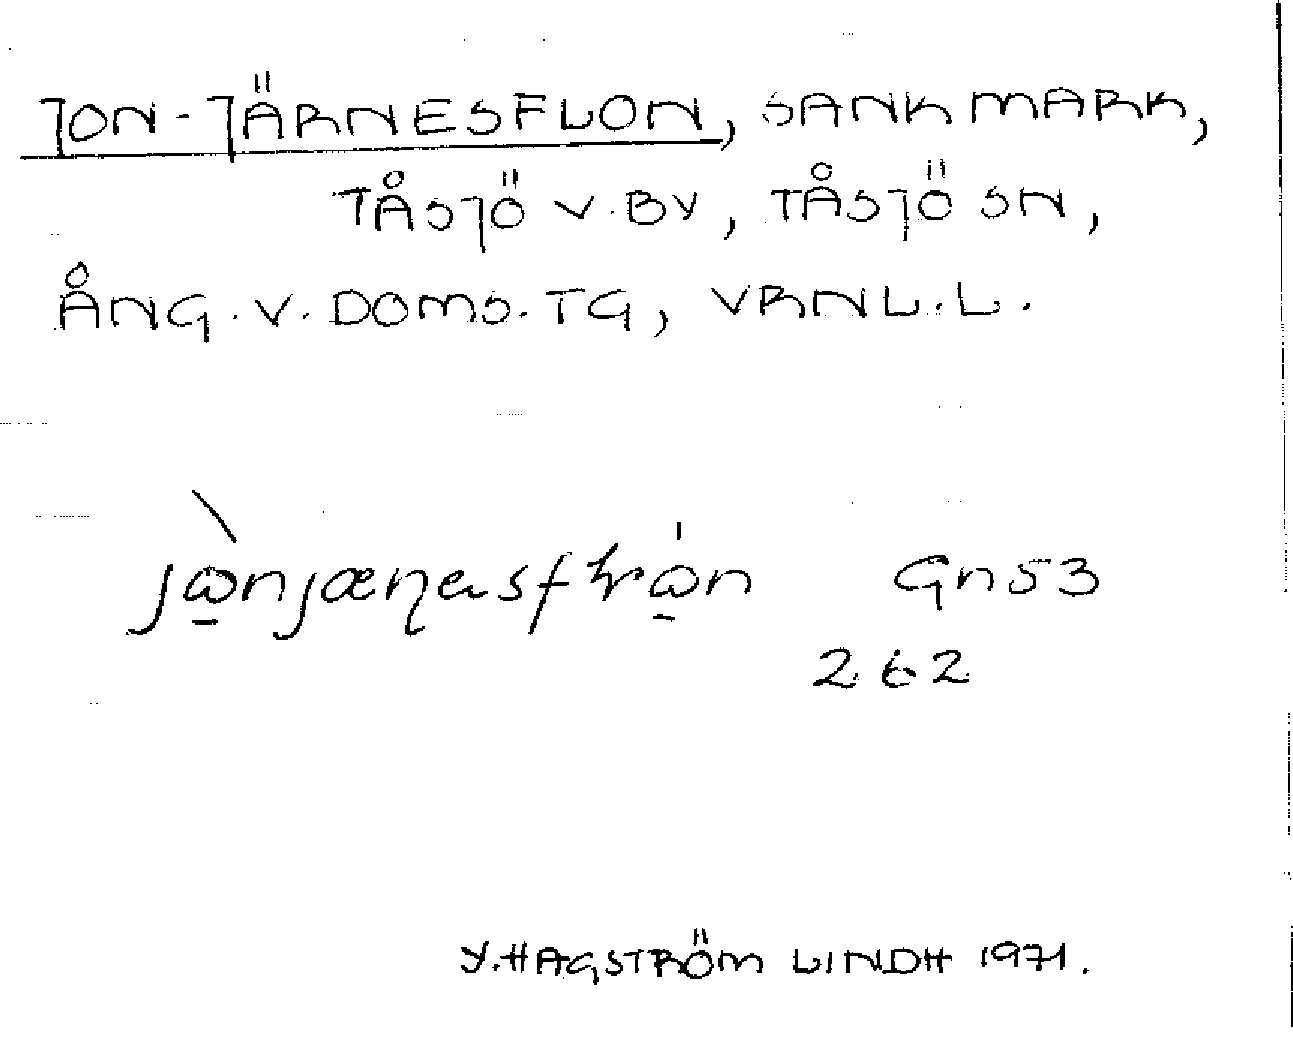 JON-JÄRNESFLON, SANKMARK,
TÅSJÖ V. BY, TÅSJÖ SN,
ÅNG. V. DOMS. TG, VRNL. L.
Gn 53
262
Y. HAGSTRÖM LINDH 1971.